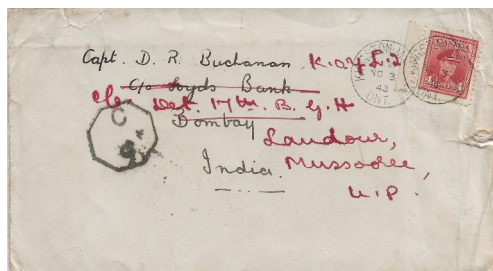 Capt. D. R. Buchanan K.O.Y.L.I
c/o Lloyds Bank
c/o Det. 17th. B. G. H
Bombay
Landour,
India. Mussoorie,
U.P.
KINGSTON
NO 3
43
ONT.
CANADA
C